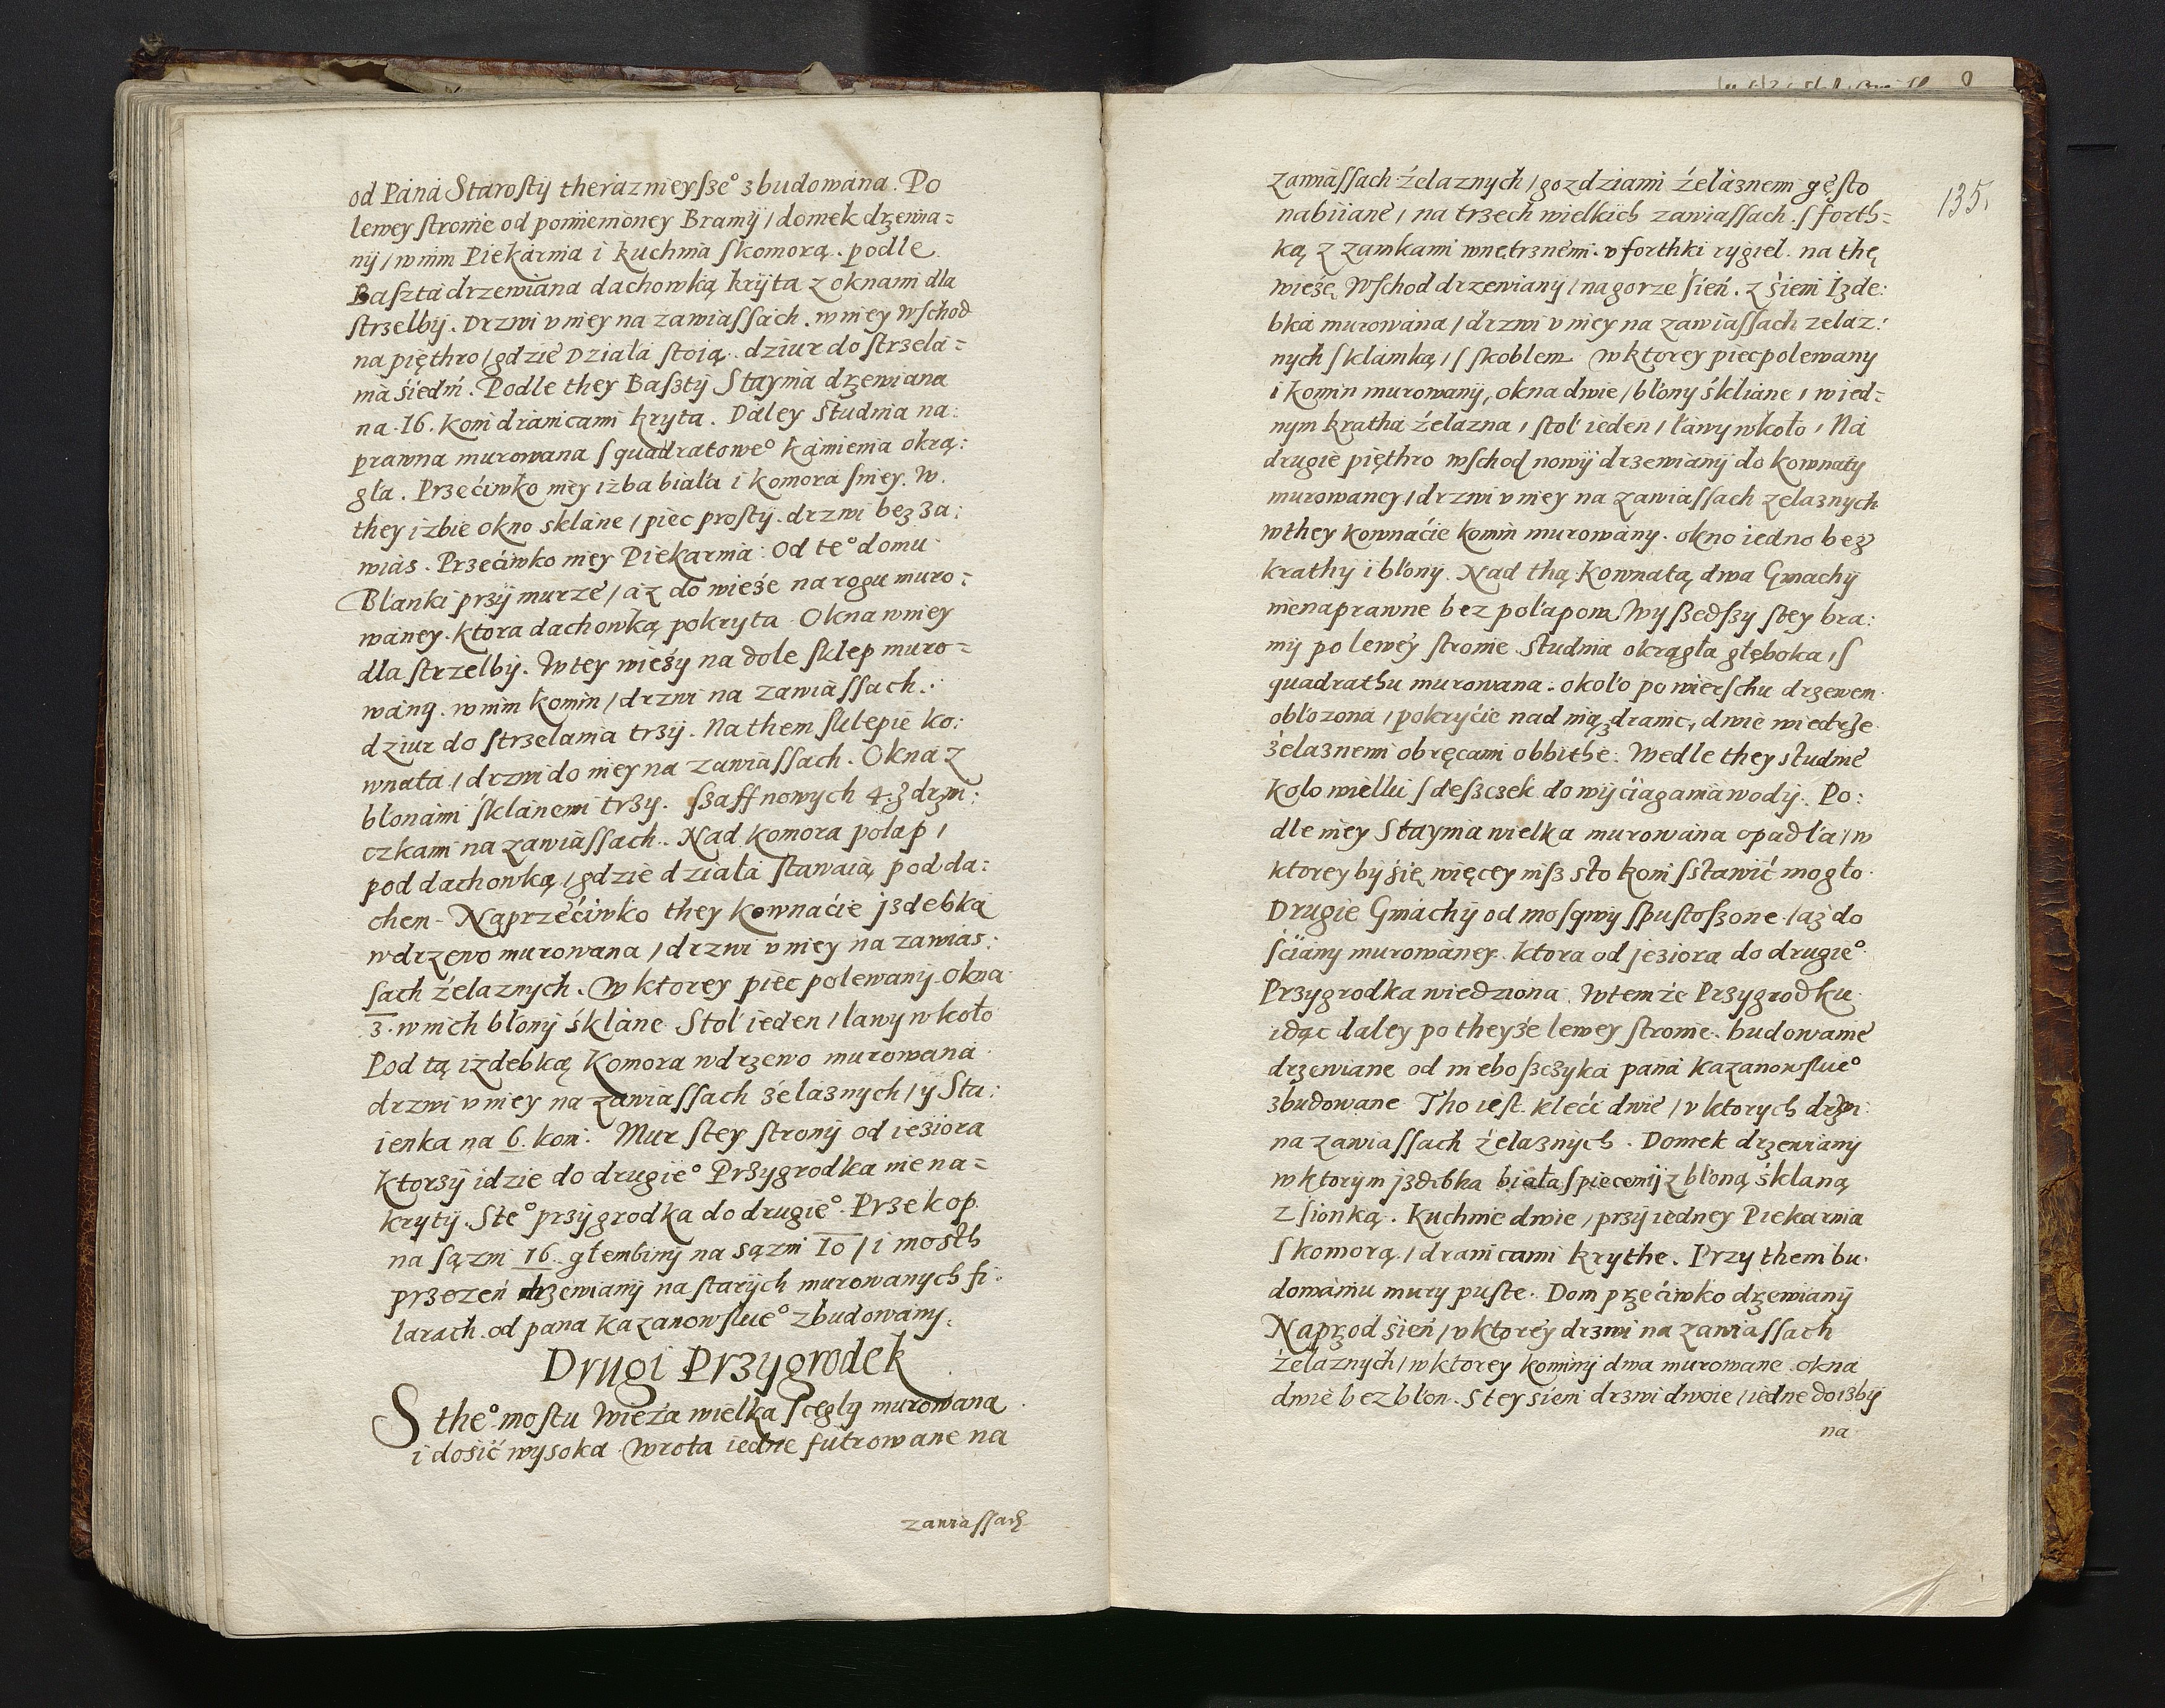 od Pána Stárosty theraznieyſze° zbudowána. Po
lewey stronie od pomienioney Bramy / domek drzewia=
ny / w nim Piekárnia i kuchnia ſkomorą. podle
Baſztá drzewiána dachowką kryta z oknami dla
strzelby. Drzwi v niey na zawiaſſách. w niey Wſchod
na pięthro / gdzie Działá stoią. dziur do strzela=
niá śiedḿ. Podle they Baſzty Staynia drzewiana
na .16. koni dránicami kryta. Dáley Studnia na:
prawna murowana ſ quadratowe° kámienia okrą:
gła. Przećiwko niey izba biała i komora ſniey. W.
they izbie okno sklane / piec prosty. drzwi bez za:
wias. Przećiwko niey Piekarnia. Od te° domu
Blanki przy murze / áż do wieże na rogu muro:
wáney. ktora dachowką pokryta. Okna w niey
dla strzelby. W tey wieży na dole ſklep muro=
wány. w nim komin / drzwi na zawiáſſach.
dziur do strzelania trzy. Na them ſklepie ko:
wnata / drzwi do niey na zawiáſſach. Okna z
błonámi ſklánemi trzy. ſzaff nowych 4. z drzwi:
czkami na zawiáſſach. Nad komora połap /
pod dachowką / gdzie działa stawaią pod da:
chem. Naprzećiwko they kownaćie jzdebka
w drzewo murowana / drzwi v niey na zawias:
ſach żelaznych. W ktorey piec polewany. okna
3. w nich błony śkláne. Stoł ieden / ławy wkoło
Pod tą izdebką Komora w drzewo murowaná
drzwi v niey na zawiáſſach żelaznych / y Sta:
ienka na 6. koni. Mur stey strony od ieźiora
ktorzy idzie do drugie° Przygrodka nie na=
kryty. Ste° przygrodka do drugie°. Przekop
na sązni 16. głembiny na sązni 10 / i mosth
przezeń drzewiany na starych murowanych fi:
larach. od pana Kazanowſkie° zbudowany.
Drugi Przygrodek
S the° mostu Wieża wielka ſ cegły murowana
i dosić wysoka. Wrota iedne futrowane na
zawiaſſach
135.
zawiáſſach żelaznych / gozdziami żeláznemi gęsto
nabiiane / na trzech wielkich zawiaſſach. ſ forth=
ką z zamkami wnętrznemi. v forthki rygiel. na thę
wieżę Wſchod drzewiany / na gorze śień. z śieni Izde:
bká murowána / drzwi v niey na zawiáſſach zeláz:
nych ſ klámką / ſ ſkoblem. W ktorey piec polewany
i komin murowany, okna dwie / błony śkliane / w ied=
nym kratha żelazna / stoł ieden / ławy wkoło / Ná
drugie pięthro wſchod nowy drzewiány do kownaty
murowaney / drzwi v niey na zawiaſſach zelaznych
w they kownaćie komin murowány. okno iedno bez
krathy i błony. Nad thą Kownatą dwa Gmachy
nienaprawne bez połapow Wyſzedſzy stey bra:
my po lewey stronie Studnia okrągła głęboka / ſ
quadrathu murowana. około po wierſchu drzewem
obłozona / pokryćie nad nią z dranic, dwie wiedrze
żelaznemi obręcami obbithe. Wedle they studnie
Koło wielki ſ deſzczek do wyćiągania wody. Po:
dle niey Staynia wielka murowana opadła / w
ktorey by śię więcey niſz sto koni ſstawić mogło.
Drugie Gmáchy od moſqwy ſpustoſzone / aż do
śćiány murowáney. ktora od jeziora do drugie°
Przygrodka wiedziona. W temże Przygrodku
idąc daley po theyże lewey stronie. budowanie
drzewiane od nieboſzczyka pána Kazanowſkie°
zbudowane Tho iest. kleći dwie / v ktorych drzwi
na zawiaſſach żelaznych. Domek drzewiany
w ktorym jzdebka biała ſ piecem y z błoną śklaną
z śionką. Kuchnie dwie / przy iedney Piekarnia
ſ komorą / dranicami krythe. Przy them bu.
dowániu mury puste. Dom przećiwko drzewiany
Naprzod śień / v ktorey drzwi na zawiaſſach
żelaznych / w ktorey kominy dwa murowane okna
dwie bez błon. Stey sieni drzwi dwoie / iedne do izby
na